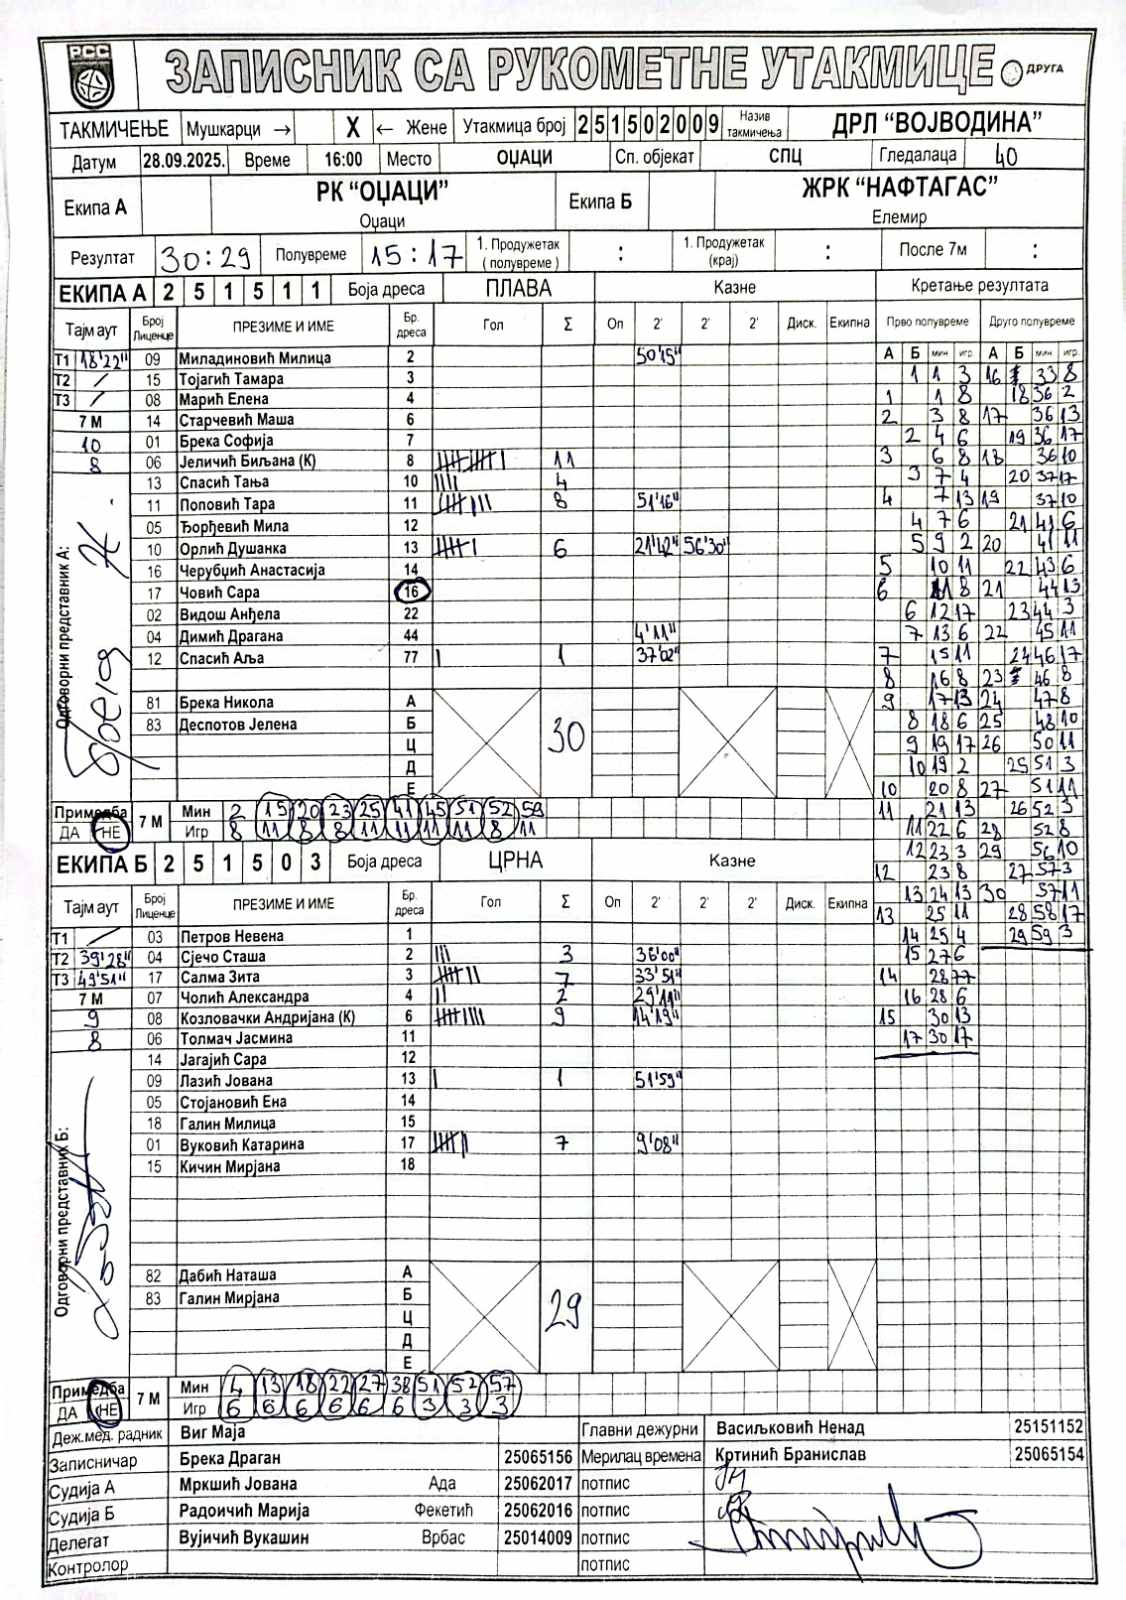 РСС
ЗАПИСНИК СА РУКОМЕТНЕ УТАКМИЦЕ ДРУГА
ТАКМИЧЕЊЕ Мушкарци → X ← Жене Утакмица број 251502009 Назив такмичења ДРЛ “ВОЈВОДИНА”
Датум 28.09.2025. Време 16:00 Место ОЏАЦИ Сп. објекат СПЦ Гледалаца 40
Екипа А РК “ОЏАЦИ” Оџаци Екипа Б ЖРК “НАФТАГАС” Елемир
Резултат 30:29 Полувреме 15:17 1. Продужетак (полувреме) : 1. Продужетак (крај) : После 7м :
ЕКИПА А 2 5 1 5 1 1 Боја дреса ПЛАВА Казне Кретање резултата
Тајм аут Број Лиценце ПРЕЗИМЕ И ИМЕ Бр. дреса Гол Σ Оп 2' 2' 2' Диск. Екипна Прво полувреме Друго полувреме
А Б мин игр. А Б мин игр.
Т1 18'22" 09 Миладиновић Милица 2 50'15"
Т2 / 15 Тојагић Тамара 3
Т3 / 08 Марић Елена 4
7 М 14 Старчевић Маша 6
10 01 Брека Софија 7
8 06 Јеличић Биљана (К) 8 11
13 Спасић Тања 10 4
11 Поповић Тара 11 8 51'16"
05 Ђорђевић Мила 12
10 Орлић Душанка 13 6 21'42" 56'30"
16 Черубџић Анастасија 14
17 Човић Сара 16
02 Видош Анђела 22
04 Димић Драгана 44 4'11"
12 Спасић Аља 77 1 37'02"
Одговорни представник А:
81 Брека Никола А
83 Деспотов Јелена Б 30
Ц
Д
Е
Примедба ДА НЕ 7 М Мин 2 15 20 23 25 41 45 51 52 59
Игр 8 11 8 8 11 11 11 11 8 11
1 1 3 16 33 8
1 1 8 18 36 2
2 3 8 17 36 13
2 4 6 19 36 17
3 6 8 18 36 10
3 7 4 20 37 17
4 7 13 19 37 10
4 7 6 21 41 6
5 9 2 20 41 11
5 10 11 22 43 6
6 11 8 21 44 13
6 12 17 23 44 3
7 13 6 22 45 11
7 15 11 24 46 17
8 16 8 23 46 8
9 17 13 24 47 8
8 18 6 25 48 10
9 19 17 26 50 11
10 19 2 25 51 3
10 20 8 27 51 11
11 21 13 26 52 3
11 22 6 28 52 8
12 23 3 29 56 10
12 23 8 27 57 3
13 24 13 30 57 11
13 25 11 28 58 17
14 25 4 29 59 3
15 27 6
14 28 77
16 28 6
15 30 13
17 30 17
ЕКИПА Б 2 5 1 5 0 3 Боја дреса ЦРНА Казне
Тајм аут Број Лиценце ПРЕЗИМЕ И ИМЕ Бр. дреса Гол Σ Оп 2' 2' 2' Диск. Екипна
Т1 / 03 Петров Невена 1
Т2 39'28" 04 Сјечо Сташа 2 3 36'00"
Т3 49'51" 17 Салма Зита 3 7 33'51"
7 М 07 Чолић Александра 4 2 29'11"
9 08 Козловачки Андријана (К) 6 9 14'19"
8 06 Толмач Јасмина 11
14 Јагајић Сара 12
09 Лазић Јована 13 1 51'59"
05 Стојановић Ена 14
18 Галин Милица 15
01 Вуковић Катарина 17 7 9'08"
15 Кичин Мирјана 18
Одговорни представник Б:
82 Дабић Наташа А
83 Галин Мирјана Б 29
Ц
Д
Е
Примедба ДА НЕ 7 М Мин 4 13 18 22 27 38 51 52 57
Игр 6 6 6 6 6 6 3 3 3
Деж.мед. радник Виг Маја Главни дежурни Васиљковић Ненад 25151152
Записничар Брека Драган 25065156 Мерилац времена Кртинић Бранислав 25065154
Судија А Мркшић Јована Ада 25062017 потпис
Судија Б Радоичић Марија Фекетић 25062016 потпис
Делегат Вујичић Вукашин Врбас 25014009 потпис
Контролор потпис